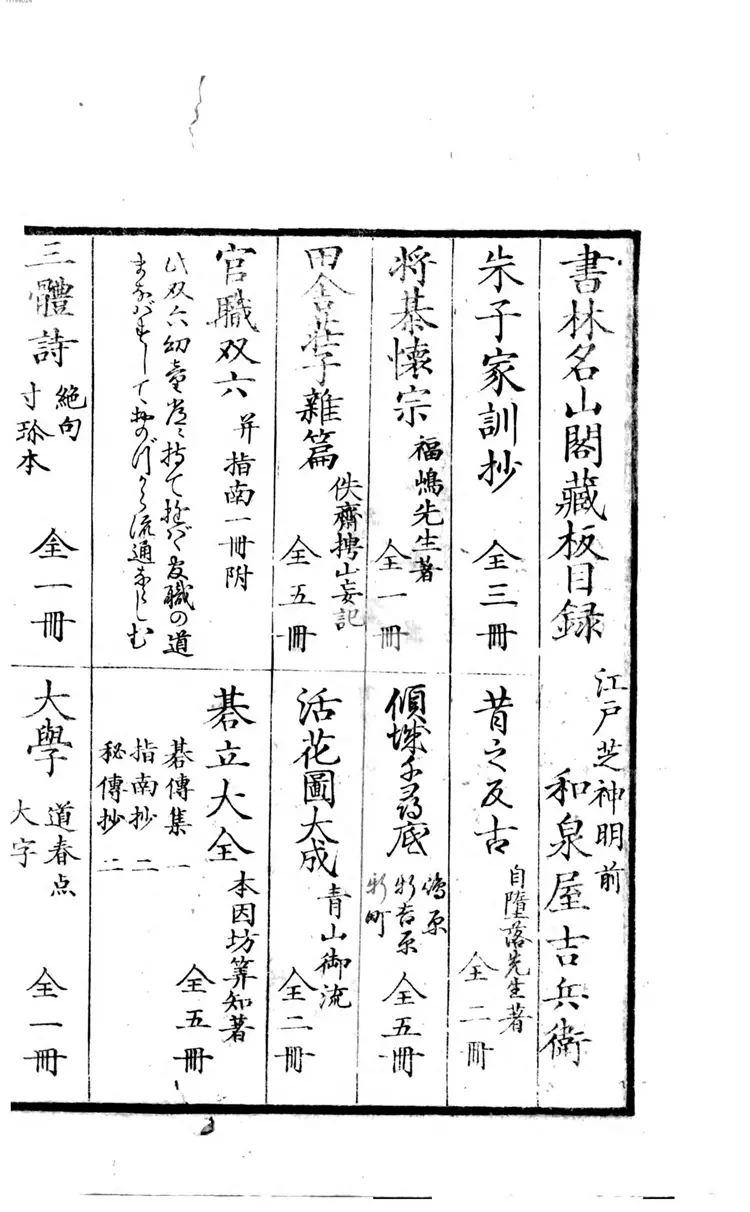 書林名山閣藏板目録
江戸芝神明前
和泉屋吉兵衛
朱子家訓抄 全三冊
昔之反古 自墮落先生著 全二冊
将棊懐宗 福嶋先生著 全一冊
傾城千尋底 嶋原 新吉原 新町 全五冊
田舎荘子雜篇 佚齋樗山妄記 全五冊
活花圖大成 青山御流 全二冊
官職双六 并指南一冊附
此双六幼童常に持て遊び官職の道
流通なさしむ
碁立大全 本因坊筭知著 全五冊
碁傳集 一
指南抄 二
秘傳抄 二
三體詩 絶句 寸珍本 全一冊
大學 道春点 大字 全一冊